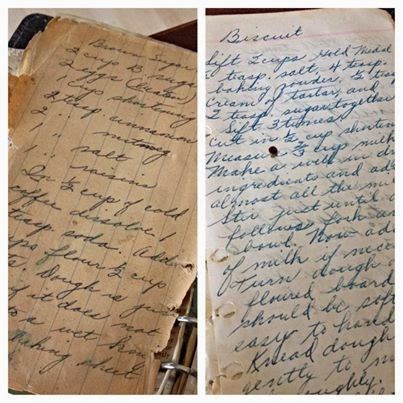 Brown Sugar
2 cup B. sugar
2 eggs (beaten)
1 cup shortning
2 teasp. cinnamon
2 " nutmeg
1 " salt
1 " raisins
In ½ cup of cold
coffee dissolve 1
teasp. soda. Add
cups flour ½ cup
Dough is
if it does not
to a wet
baking sheet
Biscuit
Sift 2 cups Gold Medal
teasp. salt, 4 teasp.
baking powder, ½ teasp
Cream of tartar, and
2 teasp. sugar together
Sift 3 times.
Cut in ½ cup shortn
Measure ⅔ cup milk
Make a well in dr
ingredients and ad
almost all the mi
Stir just until
follows fork ar
bowl. Now ad
of milk if nece
Turn dough o
floured board
should be soft
easy to handl
Knead dough
gently to m
thoroughly.